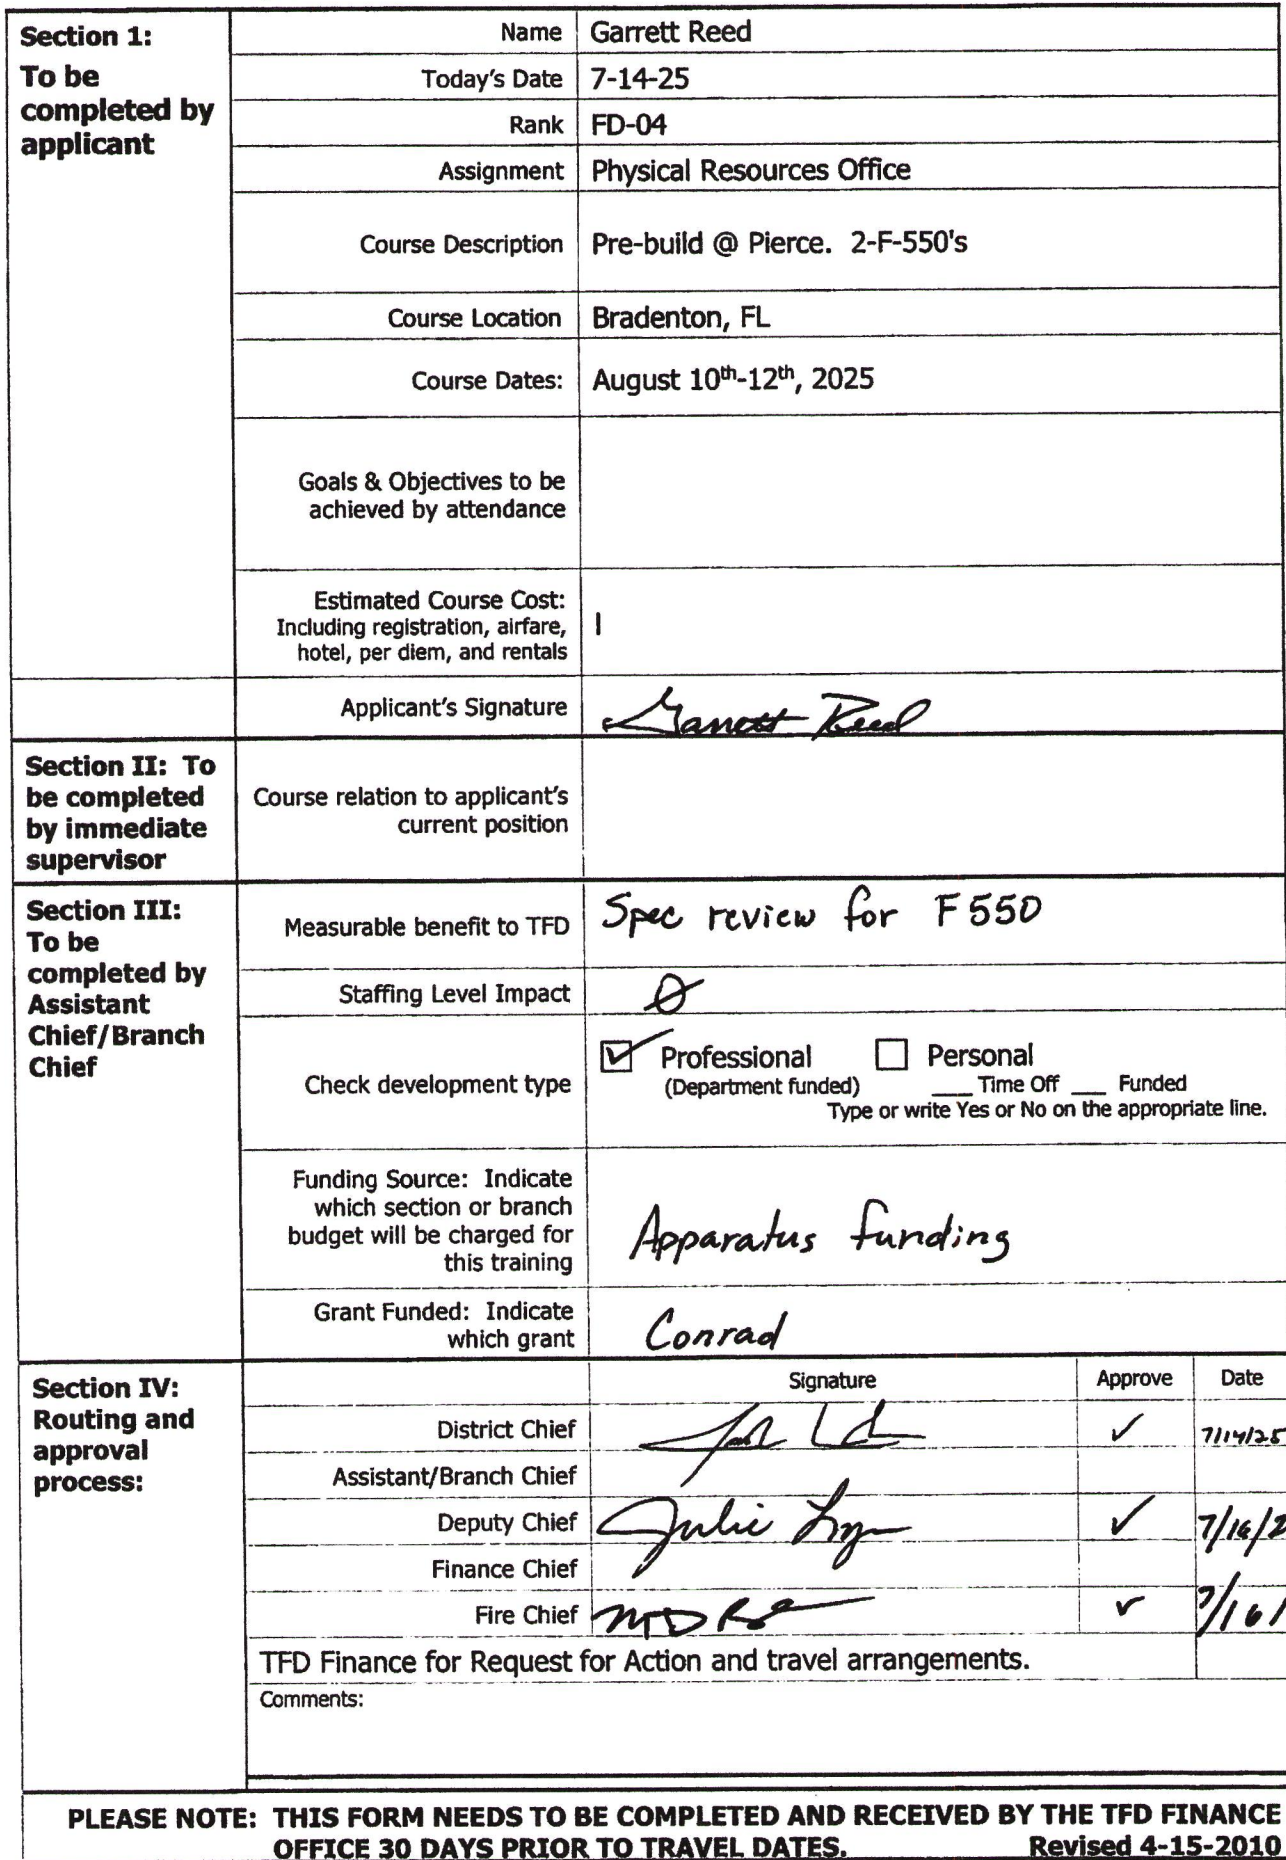 Section 1:
To be
completed by
applicant
Name Garrett Reed
Today's Date 7-14-25
Rank FD-04
Assignment Physical Resources Office
Course Description Pre-build @ Pierce. 2-F-550's
Course Location Bradenton, FL
Course Dates: August 10th-12th, 2025
Goals & Objectives to be
achieved by attendance
Estimated Course Cost:
Including registration, airfare,
hotel, per diem, and rentals
Applicant's Signature Garrett Reed
Section II: To
be completed
by immediate
supervisor
Course relation to applicant's
current position
Section III:
To be
completed by
Assistant
Chief/Branch
Chief
Measurable benefit to TFD Spec review for F550
Staffing Level Impact Ø
Check development type
Professional Personal
(Department funded) ___ Time Off ___ Funded
Type or write Yes or No on the appropriate line.
Funding Source: Indicate
which section or branch
budget will be charged for
this training
Apparatus funding
Grant Funded: Indicate
which grant
Conrad
Section IV:
Routing and
approval
process:
Signature Approve Date
District Chief ✓ 7/14/25
Assistant/Branch Chief
Deputy Chief Julie ✓ 7/16/2
Finance Chief
Fire Chief ✓ 7/16/
TFD Finance for Request for Action and travel arrangements.
Comments:
PLEASE NOTE: THIS FORM NEEDS TO BE COMPLETED AND RECEIVED BY THE TFD FINANCE
OFFICE 30 DAYS PRIOR TO TRAVEL DATES. Revised 4-15-2010